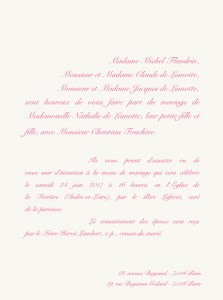 Madame Michel Flandrin,
Monsieur et Madame Claude de Lamotte,
Monsieur et Madame Jacques de Lamotte,
sont heureux de vous faire part du mariage de
Mademoiselle Nathalie de Lamotte, leur petite-fille et
fille, avec Monsieur Christian Fouchère.
Et vous prient d'assister ou de
vous unir d'intention à la messe de mariage qui sera célébrée
le samedi 24 juin 2017 à 16 heures, en l'Église de
la Ferrière (Indre-et-Loire), par le Père Lefort, curé
de la paroisse.
Le consentement des époux sera reçu
par le Frère Hervé Lambert, o. p., cousin du marié.
avenue - 75116 Paris
19, rue - 75116 Paris